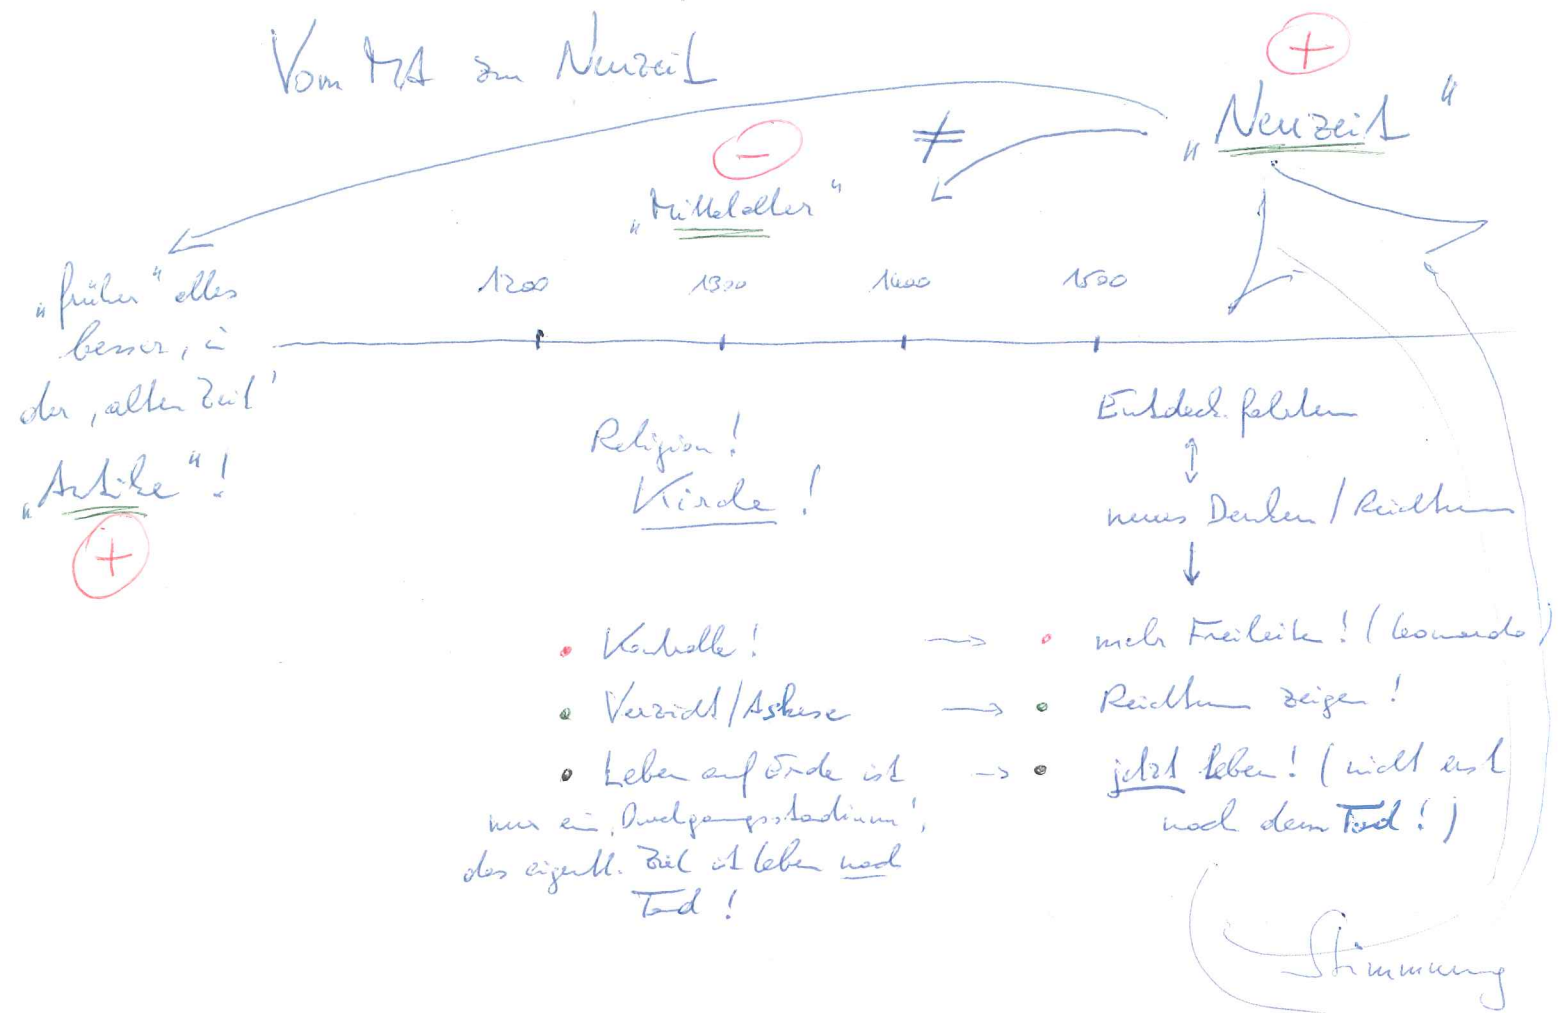 Vom MA zur Neuzeit
+
„Neuzeit"
≠
−
„Mittelalter"
„früher" alles
besser, in
der ‚alten Zeit'
„Antike"!
+
1200 1300 1400 1500
Religion!
Kirche!
Entdeck.fahrten
neues Denken / Reichtum
• Kontrolle! → • mehr Freiheiten! (Leonardo)
• Verzicht/Askese → • Reichtum zeigen!
• Leben auf Erde ist → • jetzt leben! (nicht erst
nur ein ‚Durchgangsstadium', nach dem Tod!)
das eigentl. Ziel ist Leben nach
Tod!
Stimmung